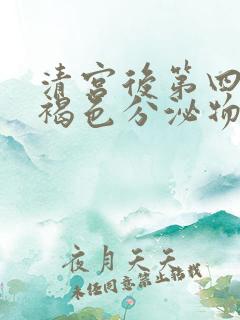 清宫後第四
褐色分泌物
夜月天天
未经同意禁止转载